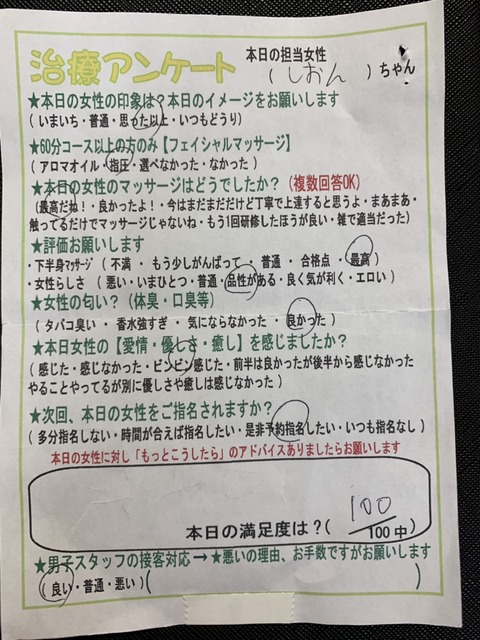 治療アンケート
本日の担当女性
(しおん)ちゃん
★本日の女性の印象は?本日のイメージをお願いします
(いまいち・普通・思った以上・いつもどうり)
★60分コース以上の方のみ【フェイシャルマッサージ】
(アロマオイル・指圧・選べなかった・なかった)
★本日の女性のマッサージはどうでしたか?(複数回答OK)
(最高だね!・良かったよ!・今はまだまだだけど丁寧で上達すると思うよ・まあまあ・
触ってるだけでマッサージじゃないね・もう1回研修したほうが良い・雑で適当だった)
★評価お願いします
・下半身マッサージ(不満・もう少しがんばって・普通・合格点・最高)
・女性らしさ(悪い・いまひとつ・普通・品性がある・良く気が利く・エロい)
★女性の匂い?(体臭・口臭等)
(タバコ臭い・香水強すぎ・気にならなかった・良かった)
★本日女性の【愛情・優しさ・癒し】を感じましたか?
(感じた・感じなかった・ビンビン感じた・前半は良かったが後半から感じなかった
やることやってるが別に優しさや癒しは感じなかった)
★次回、本日の女性をご指名されますか?
(多分指名しない・時間が合えば指名したい・是非予約指名したい・いつも指名なし)
本日の女性に対し「もっとこうしたら」のアドバイスありましたらお願いします
本日の満足度は?(100/100中)
★男子スタッフの接客対応→★悪いの理由、お手数ですがお願いします
(良い・普通・悪い)( )